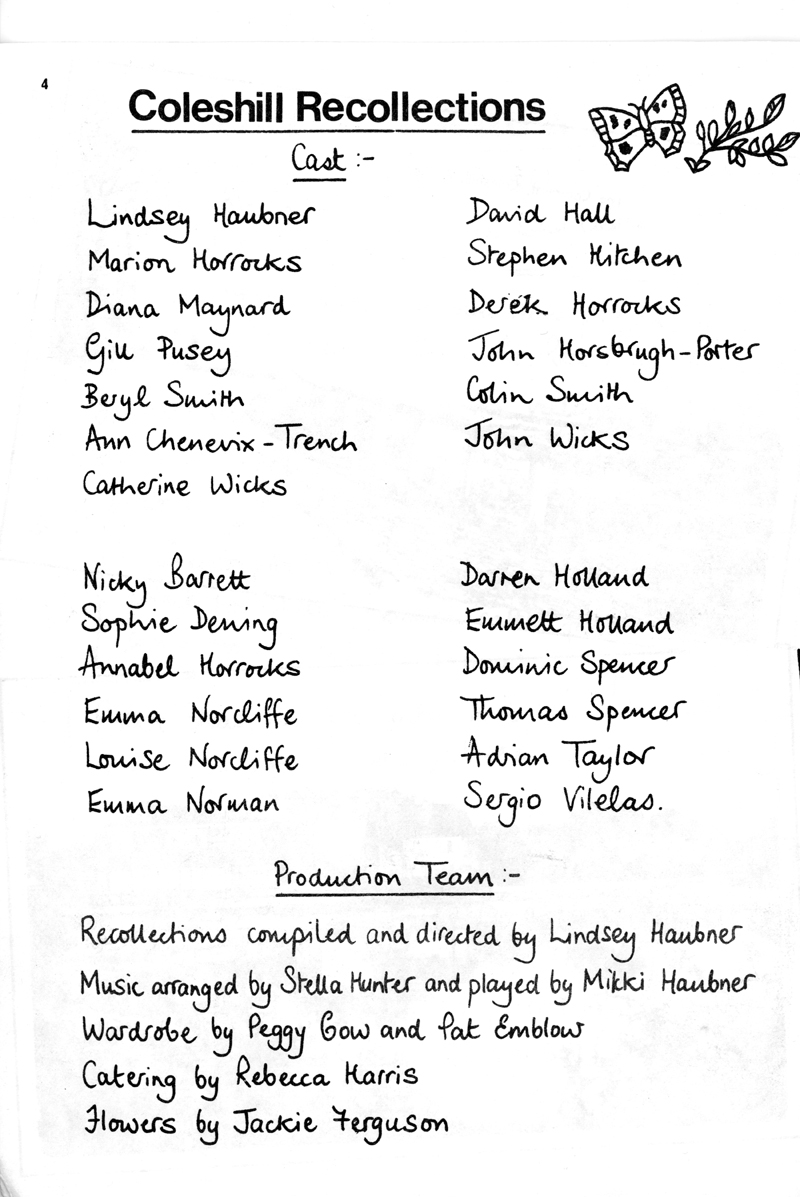 4
Coleshill Recollections
Cast :-
Lindsey Haubner
Marion Horrocks
Diana Maynard
Gill Pusey
Beryl Smith
Ann Chenevix-Trench
Catherine Wicks
David Hall
Stephen Hitchen
Derek Horrocks
John Horsbrugh-Porter
Colin Smith
John Wicks
Nicky Barrett
Sophie Dening
Annabel Horrocks
Emma Norcliffe
Louise Norcliffe
Emma Norman
Darren Holland
Emmett Holland
Dominic Spencer
Thomas Spencer
Adrian Taylor
Sergio Vilelas.
Production Team :-
Recollections compiled and directed by Lindsey Haubner
Music arranged by Stella Hunter and played by Mikki Haubner
Wardrobe by Peggy Gow and Pat Emblow
Catering by Rebecca Harris
Flowers by Jackie Ferguson